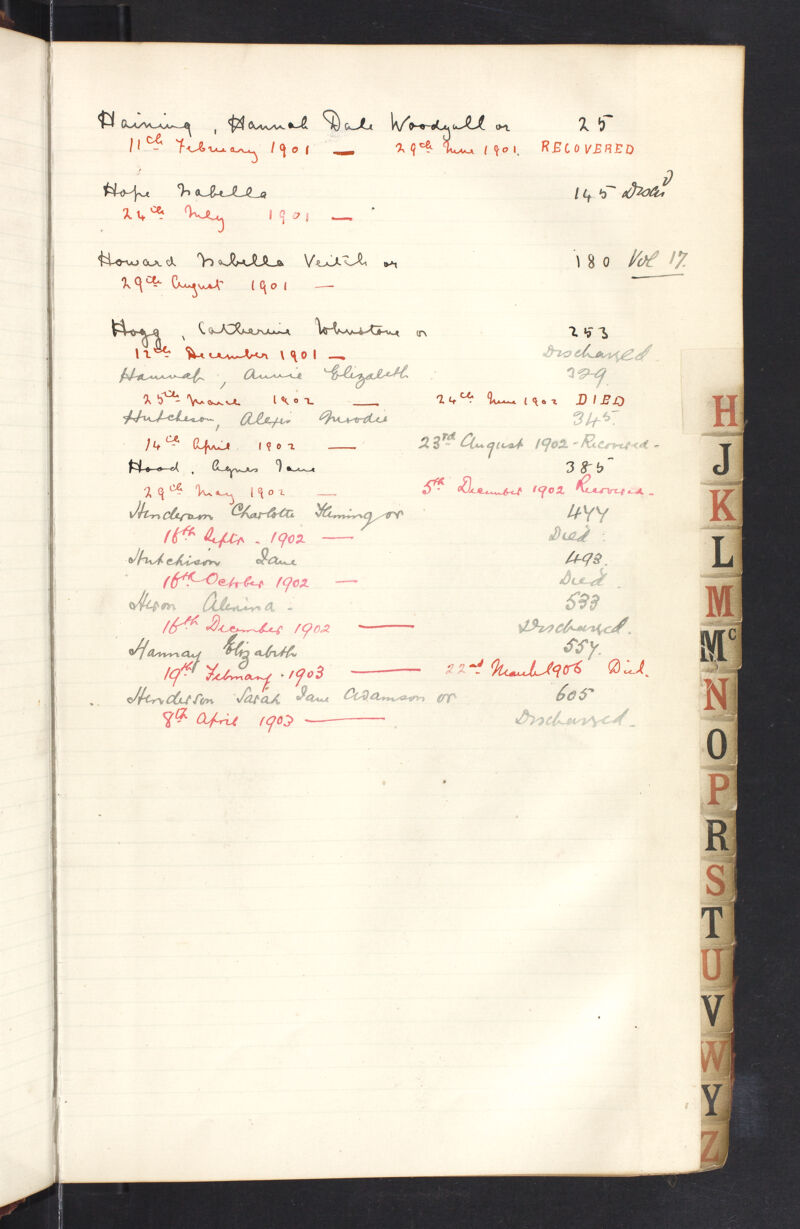 Haining, Hannah Dale Woodyall or 25
11th February 1901 — 29th June 1901. RECOVERED
Hope Isabella 145 Disch'd
24th July 1901 —
Howard Isabella Veitch or 180 Vol 17.
29th August 1901 —
Hogg, Catherine Johnstone or 253
12th December 1901 — Discharged
Hannah, Annie Elizabeth 329.
25th March 1902 — 24th June 1902 DIED
Hutcheson, Alexis Moodie 345.
14th April 1902 — 23rd August 1902 - Recovered -
Hood, Agnes Jane 385
29th May 1902 — 5th December 1902 Recovered -
Henderson Charlotte Fleming or 477
16th Septr. 1902 — Died.
Hutchison Jane 493.
16th October 1902 — Died.
Heron 533
16th December 1902 — Discharged.
Hannay Elizabeth 557.
19th February. 1903 — 22nd March 1906 Died.
Henderson Sarah Jane Adamson or 605
8th April 1903 — Discharged.
H
J
K
L
M
Mc
N
O
P
R
S
T
U
V
W
Y
Z